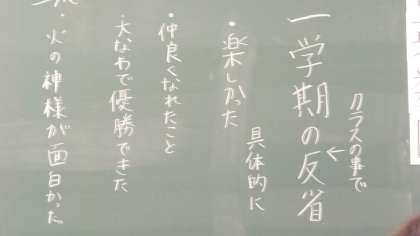 クラスの事で
一学期の反省
←
具体的に
・楽しかった
・仲良くなれたこと
・大なわで優勝できた
・火の神様が面白かった